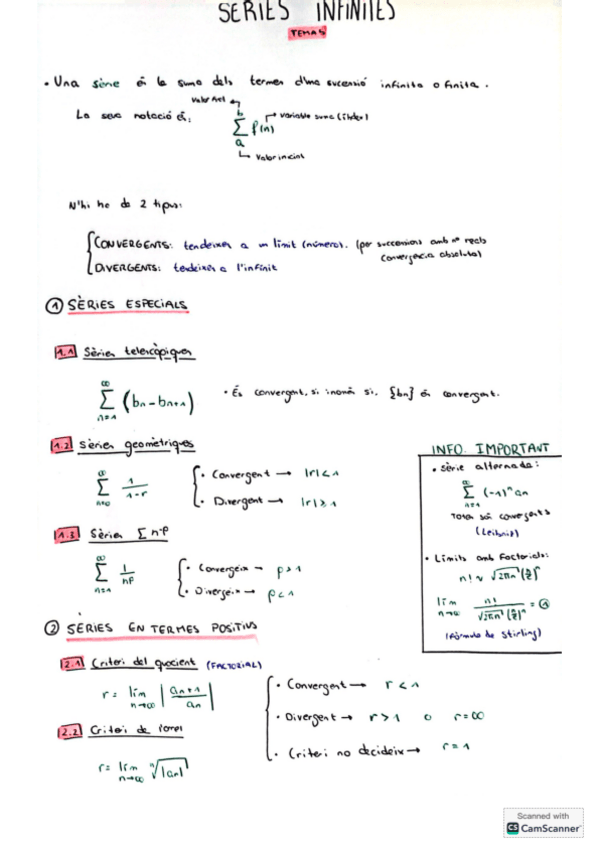 SÈRIES INFINITES
TEMA 5
• Una sèrie és la suma dels termes d'una sucessió infinita o finita.
La seva notació és:
b
∑ f(n)
a
variable suma (índex)
Valor inicial
N'hi ha de 2 tipus:
CONVERGENTS: tendeixen a un límit (número). (per successions amb nº reals
convergècia absoluta)
DIVERGENTS: tendeixen a l'infinit
① SÈRIES ESPECIALS
1.1 Sèries telescòpiques
∞
∑ (bn - bn+1)
n=1
• És convergent, si només si, {bn} és convergent.
1.2 Sèries geomètriques
∞
∑ 1/1-r
n=0
• Convergent → |r|<1
• Divergent → |r|≥1
1.3 Sèries ∑ n-p
∞
∑ 1/np
n=1
• Convergeix → p>1
• Divergeix → p<1
INFO. IMPORTANT
• Sèrie alternada:
∞
∑ (-1)n an
n=1
Totes són convergents
(Leibniz)
• Límits amb factorials:
n! ~ √2πn (n/e)n
lim n→∞ n!/√2πn (n/e)n = 1
(fórmula de Stirling)
② SÈRIES EN TERMES POSITIUS
2.1 Criteri del quocient (FACTORIAL)
r = lim n→∞ |an+1/an|
2.2 Criteri de l'arrel
r = lim n→∞ n√|an|
• Convergent → r<1
• Divergent → r>1 o r=∞
• Criteri no decideix → r=1
Scanned with
CS CamScanner